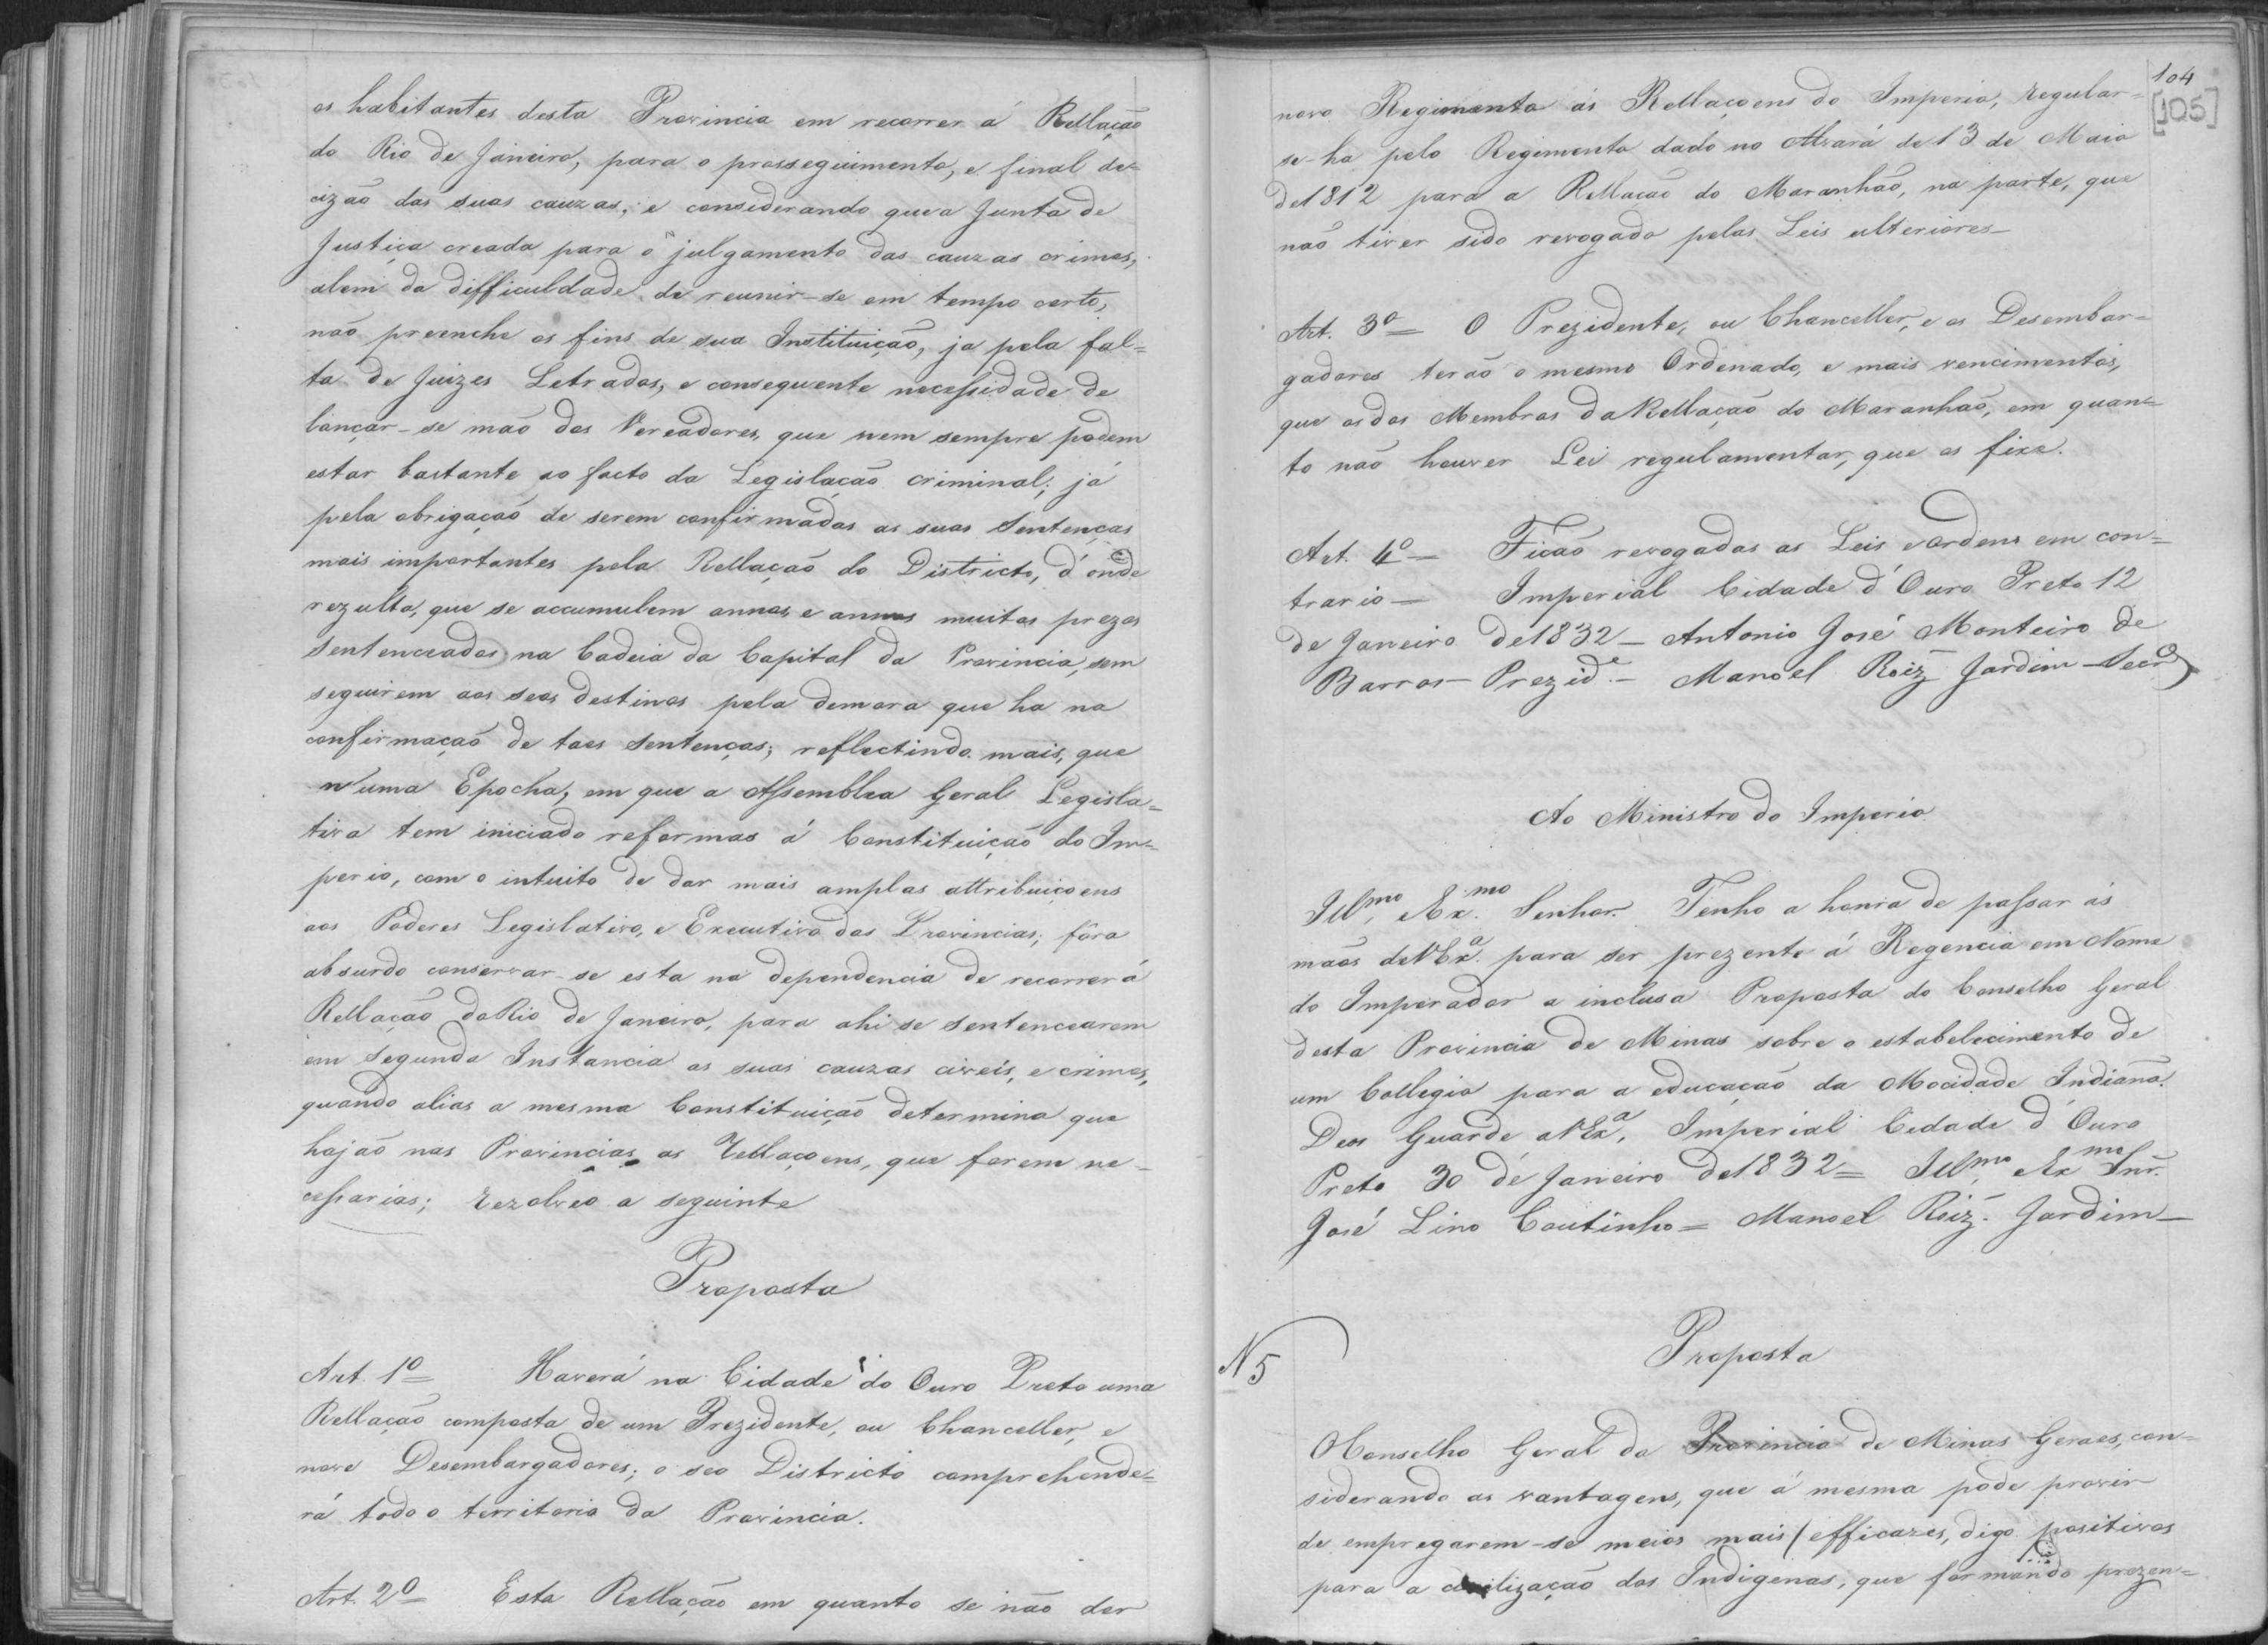 os habitantes desta Provincia em recorrer á Rellação
do Rio de Janeiro, para o prosseguimento, e final de=
cizão das suas cauzas; e considerando que a Junta de
Justiça creada para o julgamento das cauzas crimes,
alem da difficuldade de reunir-se em tempo certo,
não preenche os fins de sua Instituição, ja pela fal=
ta de Juizes Letrados, e consequente necessidade de
lançar-se mão dos Vereadores, que nem sempre podem
estar bastante ao facto da Legislação criminal; já
pela obrigação de serem confirmadas as suas Sentenças
mais importantes pela Rellação do Districto, d'onde
rezulta, que se accumulem annos e annos muitos prezos
Sentenceados na Cadeia da Capital da Provincia, sem
seguirem aos seos destinos pela demora que ha na
confirmação de taes Sentenças; reflectindo mais, que
n'uma Epocha, em que a Assemblea Geral Legisla=
tiva tem iniciado reformas á Constituição do Im=
perio, com o intuito de dar mais amplas attribuiçoens
aos Poderes Legislativo, e Executivo das Provincias, fôra
absurdo conservar-se esta na dependencia de recorrer á
Rellação do Rio de Janeiro, para ahi se sentencearem
em Segunda Instancia as suas cauzas civeis, e crimes,
quando alias a mesma Constituição determina que
hajão nas Provincias as Rellaçoens, que forem ne-
cessarias; rezolveo a seguinte
Proposta
Art. 1º = Haverá na Cidade do Ouro Preto uma
Rellação composta de um Prezidente, ou Chanceller, e
nove Desembargadores; o seo Districto comprehende=
rá todo o territorio da Provincia.
Art. 2º = Esta Rellação em quanto se não der
104
[105]
novo Regimento ás Rellaçoens do Imperio, regular=
se-ha pelo Regimento dado no Alvará de 13 de Maio
de 1812 para a Rellação do Maranhão, na parte, que
não tiver sido revogado pelas Leis ulteriores-
Art. 3º = O Prezidente, ou Chanceller, e os Desembar=
gadores terão o mesmo Ordenado, e mais vencimentos,
que os dos Membros da Rellação do Maranhão, em quan=
to não houver Lei regulamentar, que os fixe.
Art. 4º = Ficão revogadas as Leis e Ordens em con=
trario - Imperial Cidade d'Ouro Preto 12
de Janeiro de 1832 - Antonio José Monteiro de
Barros - Prezid.e - Manoel Roiz Jardim - Secr.o
Ao Ministro do Imperio
Ill.mo e Ex.mo Senhor. Tenho a honra de passar ás
mãos de V Ex.a para ser prezente á Regencia em Nome
do Imperador a inclusa Proposta do Conselho Geral
desta Provincia de Minas sobre o estabelecimento de
um Collegio para a educação da Mocidade Indiana.
Deos Guarde a V Ex.a, Imperial Cidade d'Ouro
Preto 30 de Janeiro de 1832 = Ill.mo e Ex.mo Snr.
José Lino Coutinho = Manoel Roiz. Jardim -
N 5
Proposta
O Conselho Geral da Provincia de Minas Geraes, con=
siderando as vantagens, que á mesma póde provir
de empregarem-se meios mais / efficazes, digo positivos
para a civilização dos Indigenas, que formando prezen=